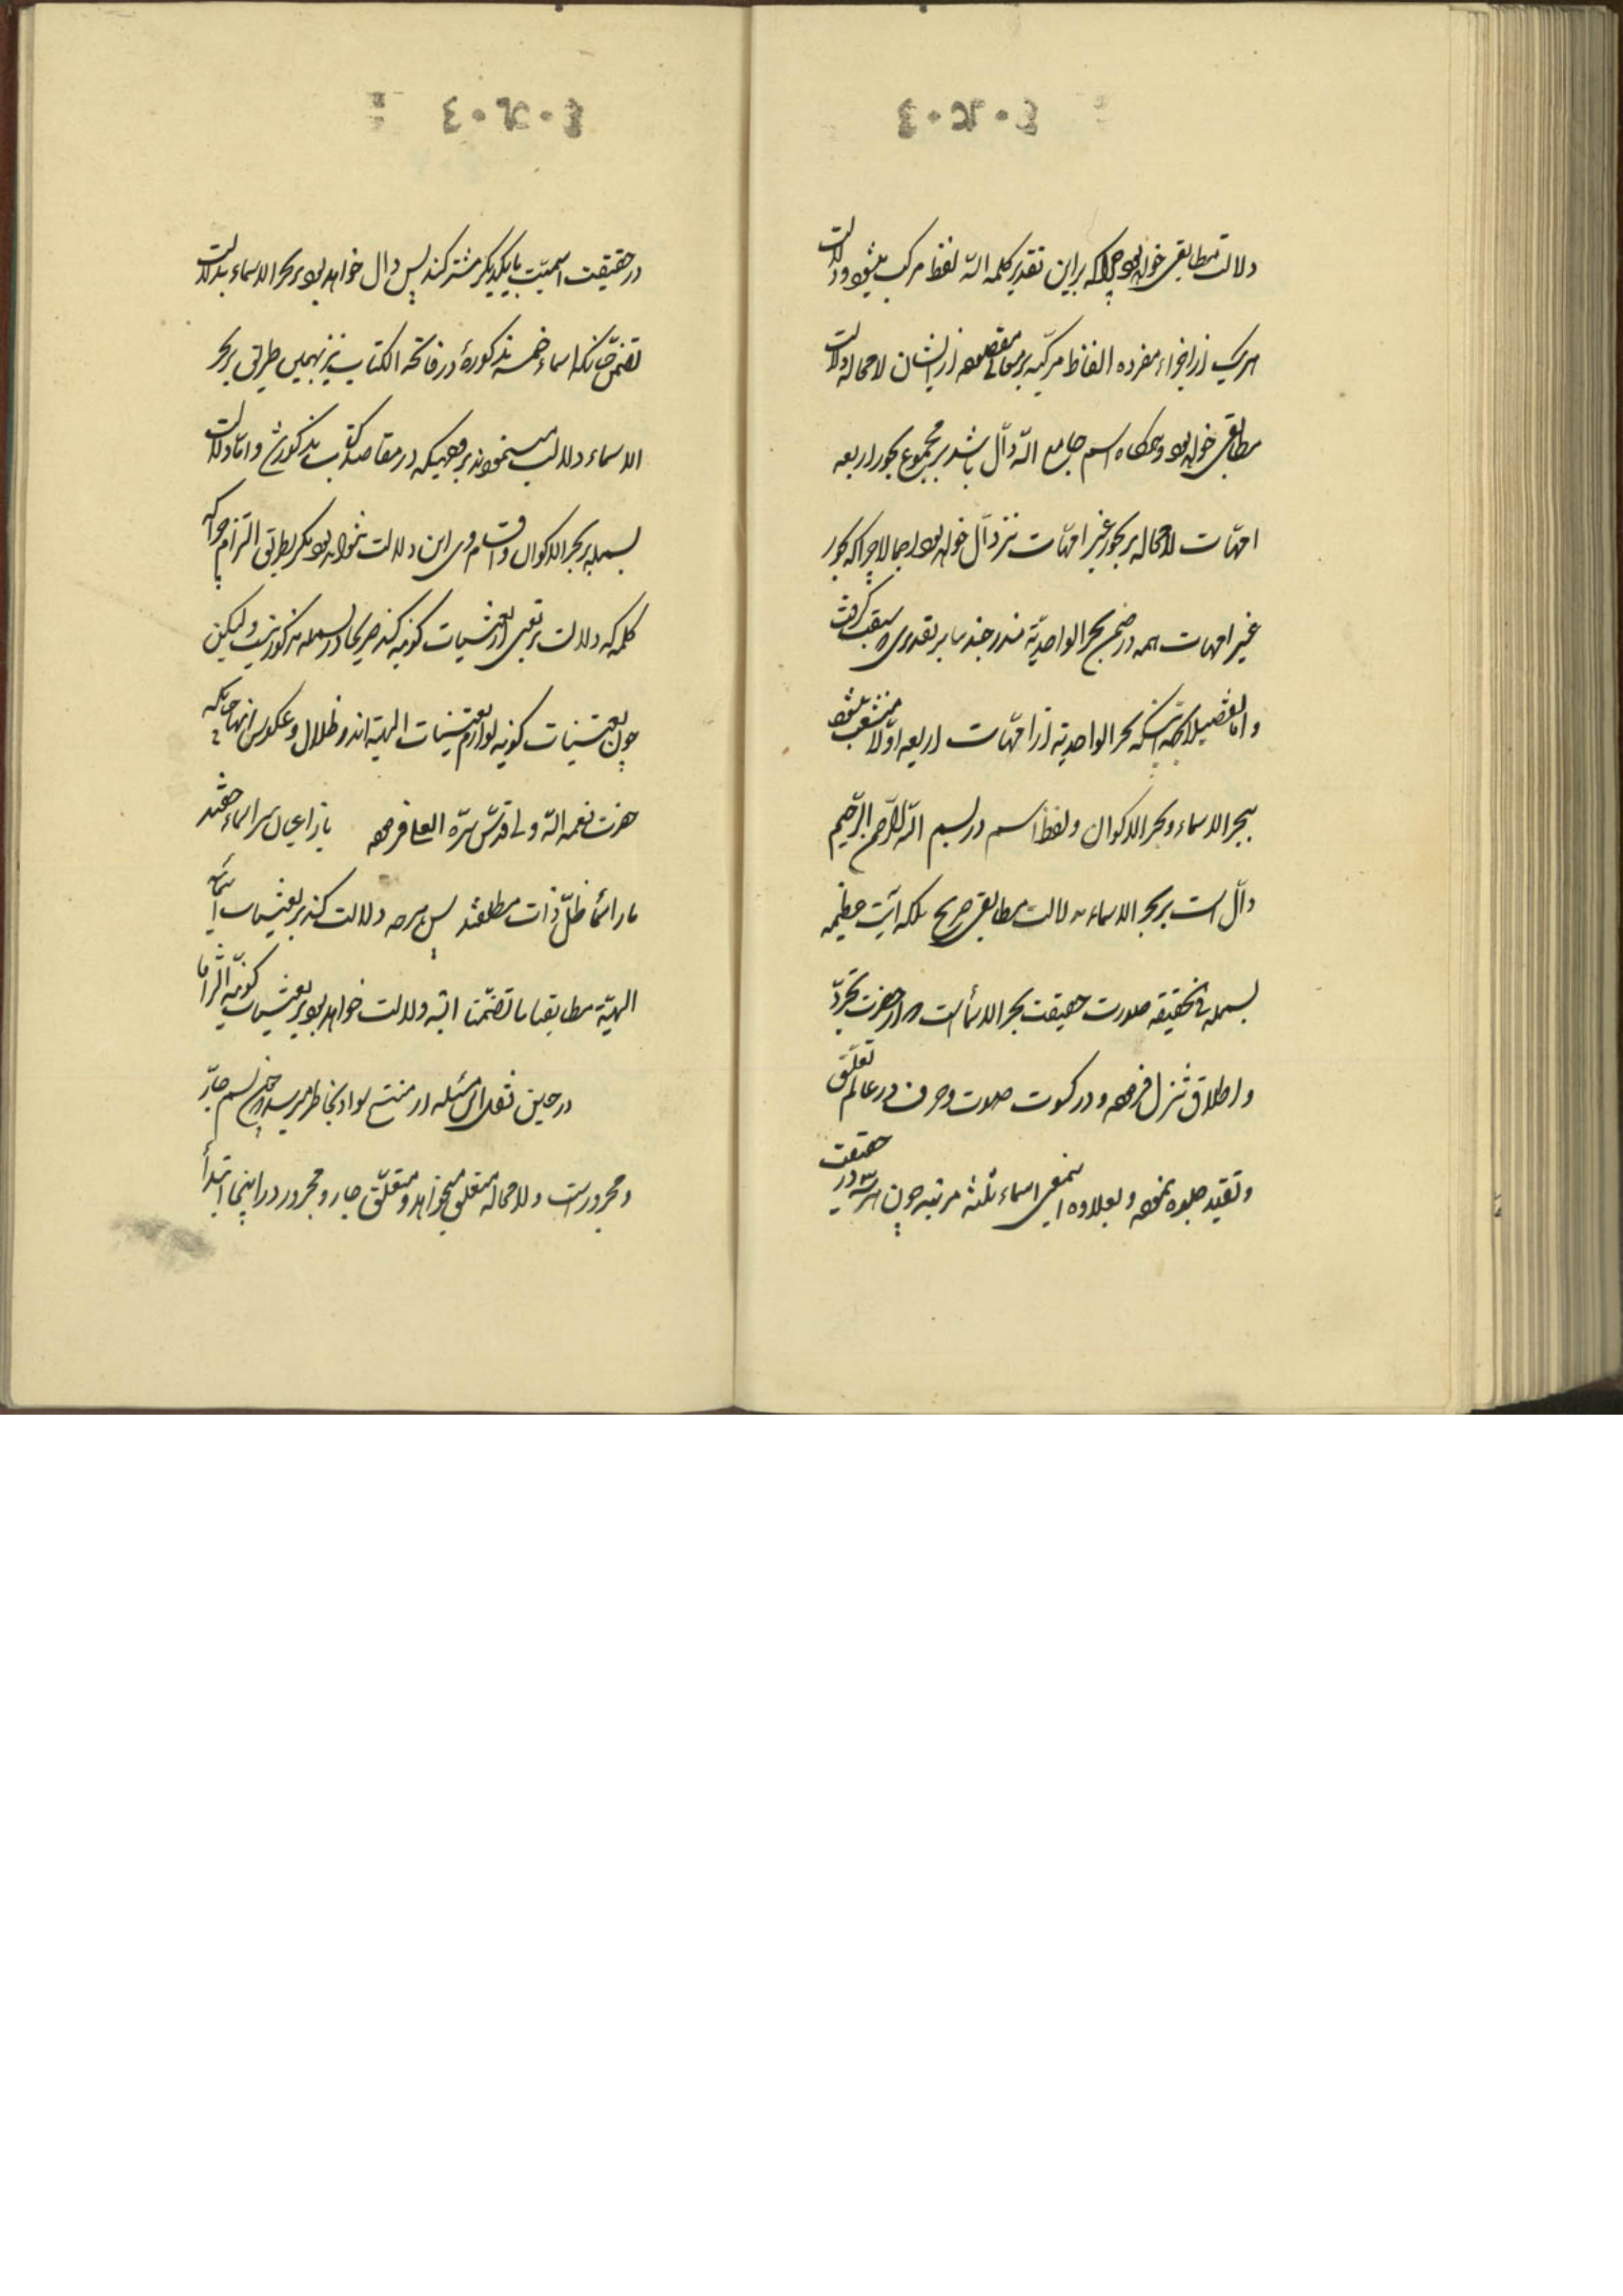 دلالت مطابقی خواهد بود چرا که براین تقدیر کلمه الله لفظ مرکب میشود ودلالت
هریک از اجزاء مفرده الفاظ مرکبه بر معانی مقصوده ازیشان لامحاله دلالت
مطابقی خواهد بود وهرگاه اسم جامع الله دالّ باشد بر مجموع بحور اربعه
امّهات لامحاله بر بحور غیر امّهات نیز دالّ خواهد بود اجمالا چرا که بحور
غیر امهات همه در ضمن بحر الواحدیّة مندرجند بنابر تقدیری که سبقت گرفت
واما تفصیلا بجهة آنکه بحر الواحدیة از امّهات اربعه اوّلا منشعب میشود
ببحر الاسماء وبحر الاکوان ولفظ اسم در بسم الله الرّحمن الرّحیم
دالّ است بر بحر الاسماء بدلالت مطابقی صریح بلکه آیت عظیمه
بسمله فی الحقیقه صورت حقیقت بحر الاسماء است که از حضرت تجرّد
واطلاق تنزل فرموده ودر کسوت صوت وحرف در عالم تعلّق
وتقید جلوه نموده وبعلاوه این معنی اسماء ثلثه مرتبه چون هر سه در حقیقت
در حقیقت اسمیّت بایکدیگر مشترکند پس دال خواهد بود بر بحر الاسماء بدلالت
تضمّن چنانکه اسماء خمسه مذکورهٔ در فاتحة الکتاب نیز بهمین طریق بر بحر
الاسماء دلالت مینمودند بروجهیکه در مقاصد کتاب مذکور شد وامّا دلالت
بسمله بر بحر الاکوان واقسام وی این دلالت نخواهد بود مگر بطریق التزام چرا که
کلمه که دلالت بر تعیّنی از تعیّنات کونیه کند صریحا در بسمله مذکور نیست ولیکن
چون تعیّنات کونیه لوازم تعیّنات الهیّه اند وظلال وعکوس آنها چنانکه
حضرت نعمة الله ولی قدّس سرّه العلی فرموده بازاعیان سر اسماء حقند
باز اسما ظلّ ذات مطلقند پس هرچه دلالت کند بر تعیّنات اسمائیه
الهیّة مطابقتا یا تضمّنا البته دلالت خواهد بود بر تعیّنات کونیّه التزاما
در حین نقل این مسئله از بخاطر میرسد که چون بسم جارّ
ومجرورست ولامحاله متعلّق میخواهد ومتعلّق جار ومجرور دراینجا ابتدأ